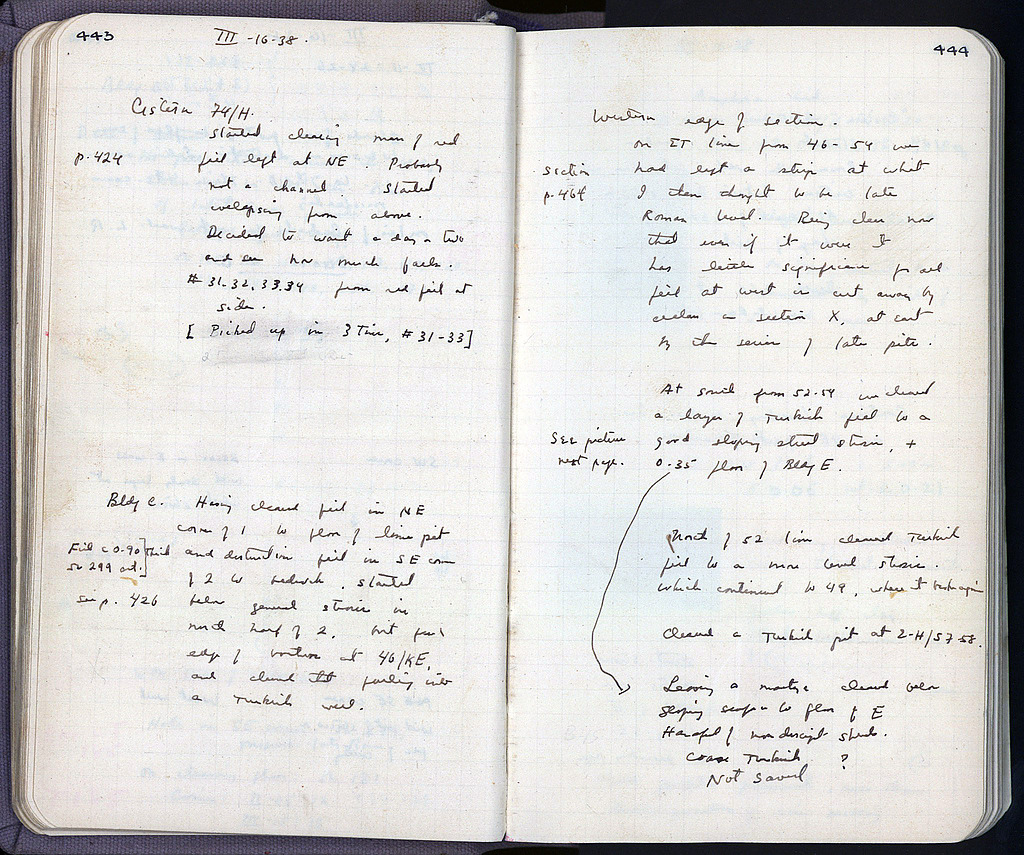 443
III -16-38.
Cistern 74/H.
Started clearing mass of red
p. 424
fill left at NE Probably
not a channel. Started
collapsing from above.
Decided to wait a day or two
and see how much falls.
# 31-32, 33, 34 from red fill at
side.
[ Picked up in 3 Tins, # 31-33 ]
Bldg C. Having cleared fill in NE
corner of 1 to floor of lime pit
Fill c 0.90 thick
and destruction fill in SE corner
of 2 to bedrock, started
see p. 426
below general strosis in
north half of 2, but found
edge of at 46/KE,
and cleared that fading into
a Turkish well.
444
Western edge of section.
on ET line from 46-54 we
section
had left a strip at what
p. 464
I then thought to be late
Roman level. Being clear now
that even if it were it
has little significance for all
fill at west is cut away by
section X, at east
by the series of late pits.
At south from 52-54 we cleared
a layer of Turkish fill to a
See picture
good sloping street strosis, +
next page.
0.35 floor of Bldg E.
North of 52 line cleared Turkish
fill to a more level strosis.
which continued to 49, where it
Cleared a Turkish pit at 2-H/57-58.
Leaving a cleared below
sloping to floor of E
Handful of nondescript sherds.
coarse Turkish ?
Not saved